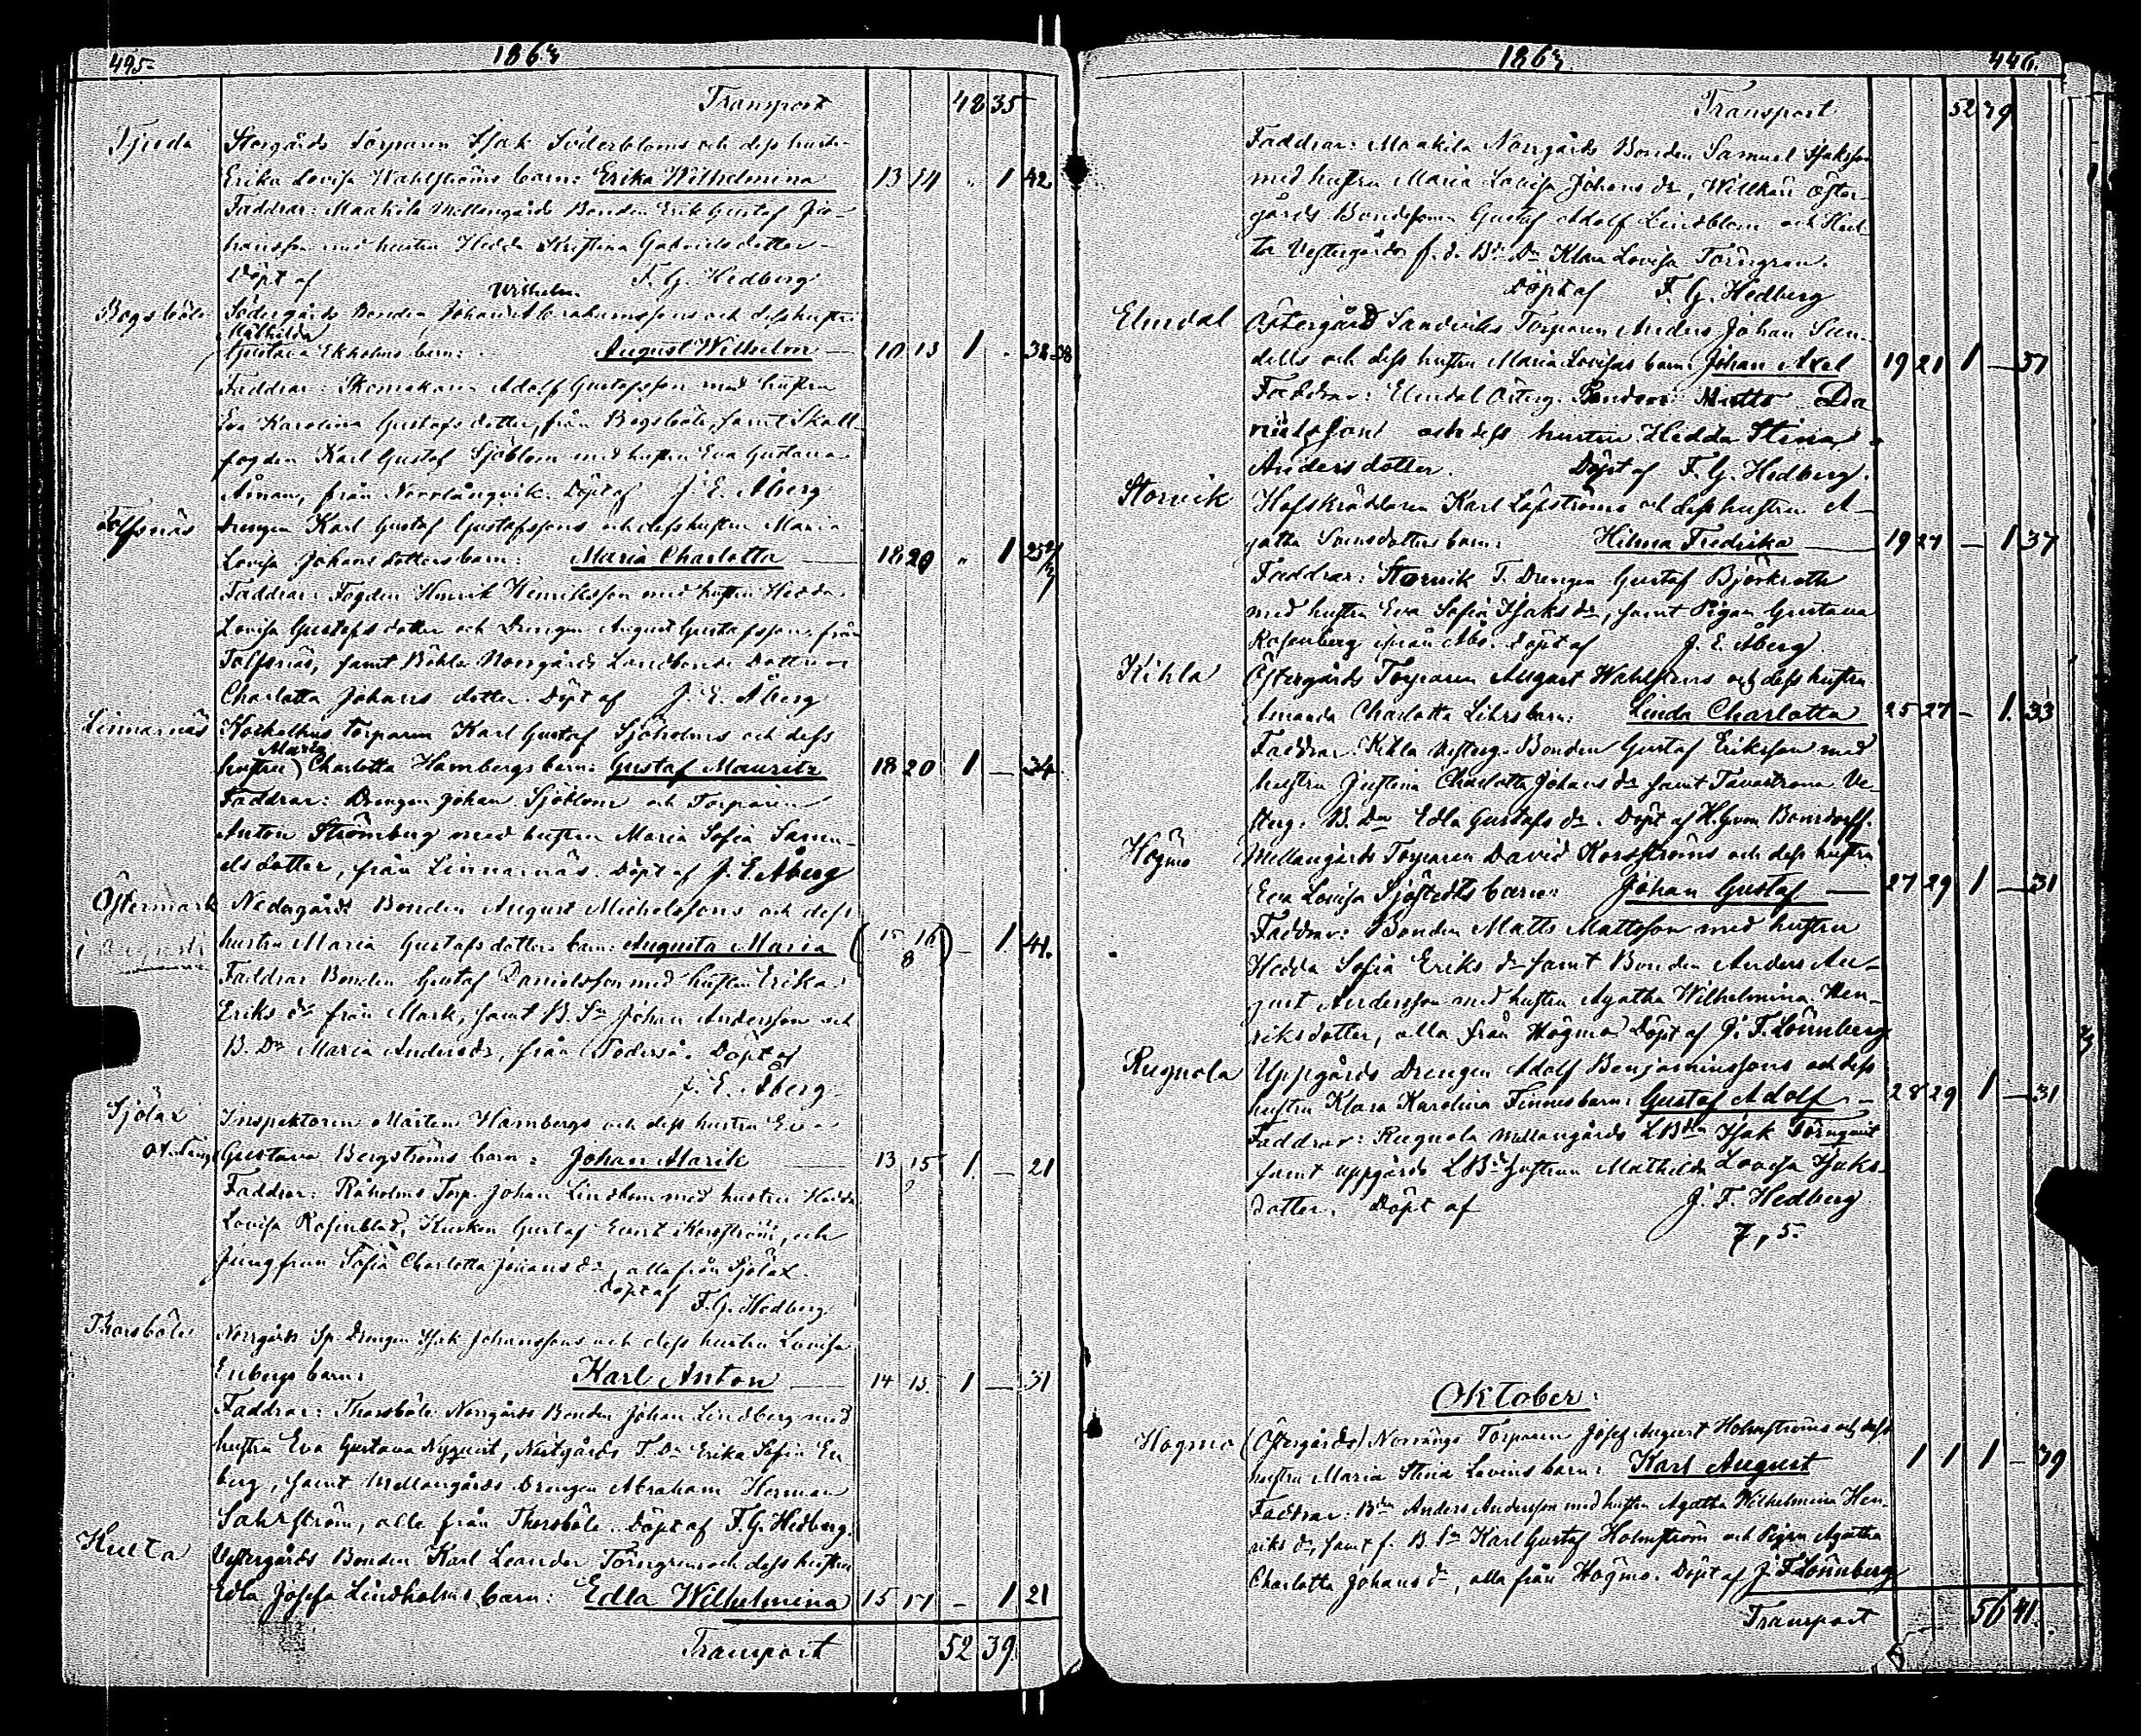 495. 1863
Transport 48 35
Tjuda Storgårds Torparen Isak Söderbloms och dess hustru
Erika Lovisa Wahlströms barn: Erika Wilhelmina 13 14 „ 1 42
Faddrar: Maakila Mellangårds Bonden Erik Gustaf Jo-
hansson med hustru Hedda Kristina Gabrielsdotter
Döpt af F. G. Hedberg
Wilhelm
Bogsböle Södergårds Bonden Johan Abrahamssons och dess hustru
Mathilda
Gustava Ekholms barn: August Wilhelm 10 13 1 . 38
Faddrar: Skomakaren Adolf Gustafsson med hustru
Eva Karolina Gustafsdotter, från Bogsböle, samt Skall-
fogden Karl Gustaf Sjöblom med hustru Eva Gustava
Åman, från Norrlångvik. Döpt af J. E. Åberg
Tolfsnäs Drengen Karl Gustaf Gustafssons och dess hustru Maria
Lovisa Johansdotters barn: Maria Charlotta 18 20 „ 1
Faddrar: Fogden Henrik Henriksson med hustru Hedda
Lovisa Gustafsdotter och Drengen August Gustafsson, från
Tolfsnäs, samt Böhle Norrgårds Landbonde Dottren
Charlotta Johansdotter. Döpt af J. E. Åberg
Linnarnäs Torparen Karl Gustaf Sjöholms och dess
Maria
hustru Charlotta Hambergs barn: Gustaf Mauritz 18 20 1 — 34
Faddrar: Drengen Johan Sjöblom och Torparen
Anton Strömberg med hustru Maria Sofia Samu-
elsdotter, från Linnarnäs. Döpt af J. E. Åberg
Östermark Nedergårds Bonden August Michelssons och dess
i Augusti hustru Maria Gustafsdotters barn: Augusta Maria (15 16 8) — 1 41.
Faddrar Bonden Gustaf Danielsson med hustru Erika
Eriks dr från Mark, samt B. Sn Johan Andersson och
B. Dr Maria Anders dr, från Döpt af
J. E. Åberg
Sjölax Inspektoren Mårten Hambergs och dess hustru Eva
Gustava Bergströms barn: Johan Alarik 13 15 1 — 21
Faddrar: Råholms Torp. Johan Lindbom med hustru Hedda
Lovisa Rosenblad, Kusken Gustaf Evert Korsström, och
Jungfrun Sofia Charlotta Johans dr, alla från Sjölax.
Döpt af F. G. Hedberg
Thorsböle Norrgårds Sp. Drengen Isak Johanssons och dess hustru Lovisa
Enbergs barn: Karl Anton 14 15 1 — 31
Faddrar: Thorsböle Norrgårds Bonden Johan Lindberg med
hustru Eva Gustava Nyqvist, Nistgårds T. Dr Erika Sofia En-
berg, samt Mellangårds Drengen Abraham Herman
Sahlström, alla från Thorsböle. Döpt af F. G. Hedberg.
Hulta Vestergårds Bonden Karl Leander Törngrens och dess hustru
Edla Josefa Lindholms barn: Edla Wilhelmina 15 17 — 1 21
Transport 52 39
1863. 446.
Transport 52 39
Faddrar: Maakila Norrgårds Bonden Samuel Isaksson
med hustru Maria Lovisa Johans dr, Willkari Öster-
gårds Bondesonen Gustaf Adolf Lindblom och Hul-
ta Vestergårds f. d. B. Dr Klara Lovisa Törngren.
Döpt af F. G. Hedberg
Elmdal Östergård Sandviks Torparen Anders Johan San-
dells och dess hustru Maria Lovisas barn: Johan Axel 19 21 1 — 37
Faddrar: Elmdal Österg. Bonden Matts Da-
nielsson och dess hustru Hedda Stina
Andersdotter. Döpt af F. G. Hedberg.
Storvik Hofskräddaren Karl Löfströms och dess hustru A-
gatha barn: Hilma Fredrika 19 27 — 1 37
Faddrar: Storvik T. Drengen Gustaf Björkroth
med hustru Eva Sofia Isaks dr, samt Pigan Gustava
Rosenberg ifrån Åbo. Döpt af J. E. Åberg
Kihla Östergårds Torparen August Wahlstens och dess hustru
Amanda Charlotta Lihrs barn: Linda Charlotta 25 27 — 1. 33
Faddrar: Kihla Vesterg. Bonden Gustaf Eriksson med
hustru Justina Charlotta Johans dr samt Tavastrona Ve-
sterg. B. Dr Edla Gustafs dr. Döpt af H. G. von Bonsdorff.
Högmo Mellangårds Torparen David Korsströms och dess hustru
Eva Lovisa Sjöstedts barn: Johan Gustaf 27 29 1 — 31
Faddrar: Bonden Matts Mattsson med hustru
Hedda Sofia Eriks dr samt Bonden Anders Au-
gust Andersson med hustru Agatha Wilhelmina Hen-
riksdotter, alla från Högmo Döpt af J. F. Lönnberg
Rugnola Uppgårds Drengen Adolf Benjaminssons och dess
hustru Klara Karolina Finnes barn: Gustaf Adolf 28 29 1 — 31
Faddrar: Rugnola Mellangårds LBdn Isak Törnqvist
samt uppgårds LBds hustrun Mathilda Lovisa Isaks-
dotter. Döpt af J. F. Hedberg
7, 5.
Oktober:
Högmo (Östergårds) Norrängs Torparen Josef August Holmströms och dess
hustru Maria Stina Levins barn: Karl August 1 1 1 — 39
Faddrar: Bdn Anders Andersson med hustru Agatha Wilhelmina Hen-
riks dr, samt f. B. Sn Karl Gustaf Holmström och Pigan Agatha
Charlotta Johans dr, alla från Högmo. Döpt af J. F. Lönnberg
Transport 56 41.